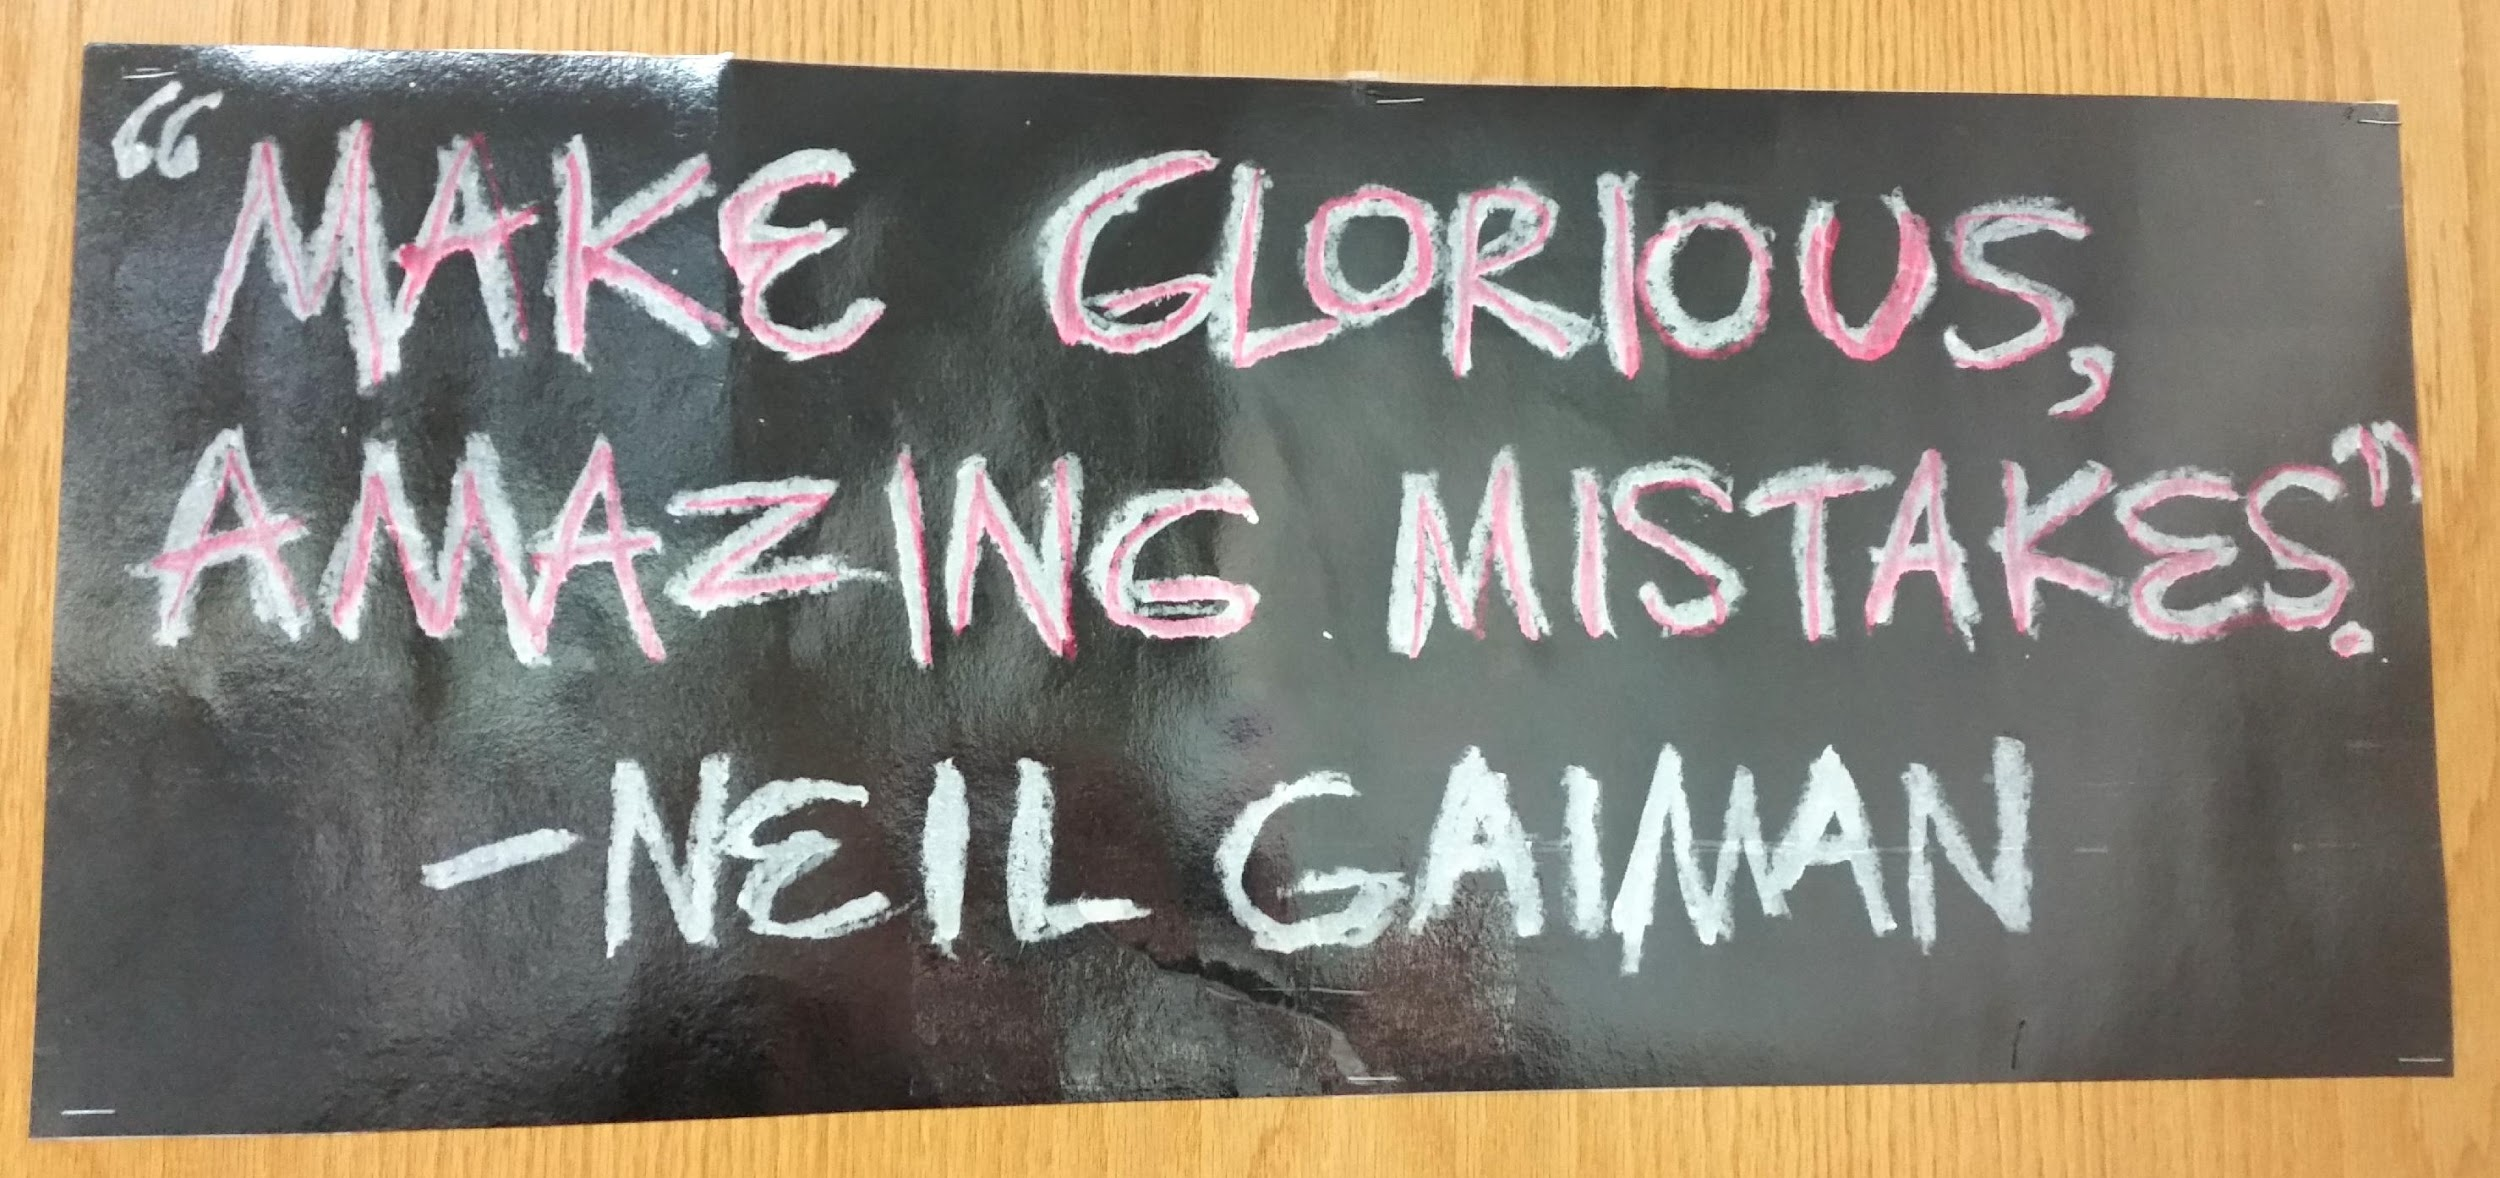 “MAKE GLORIOUS,
AMAZING MISTAKES.”
–NEIL GAIMAN